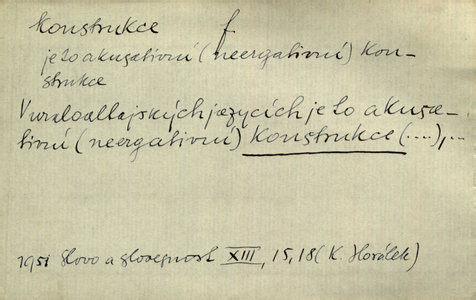 Konstrukce f
je to akusativní (neergativní) kon-
strukce
V uraloaltajských jazycích je to akusa-
tivní (neergativní) konstrukce (....),...
1951 Slovo a slovesnost XIII, 15,18 (K. Horálek)